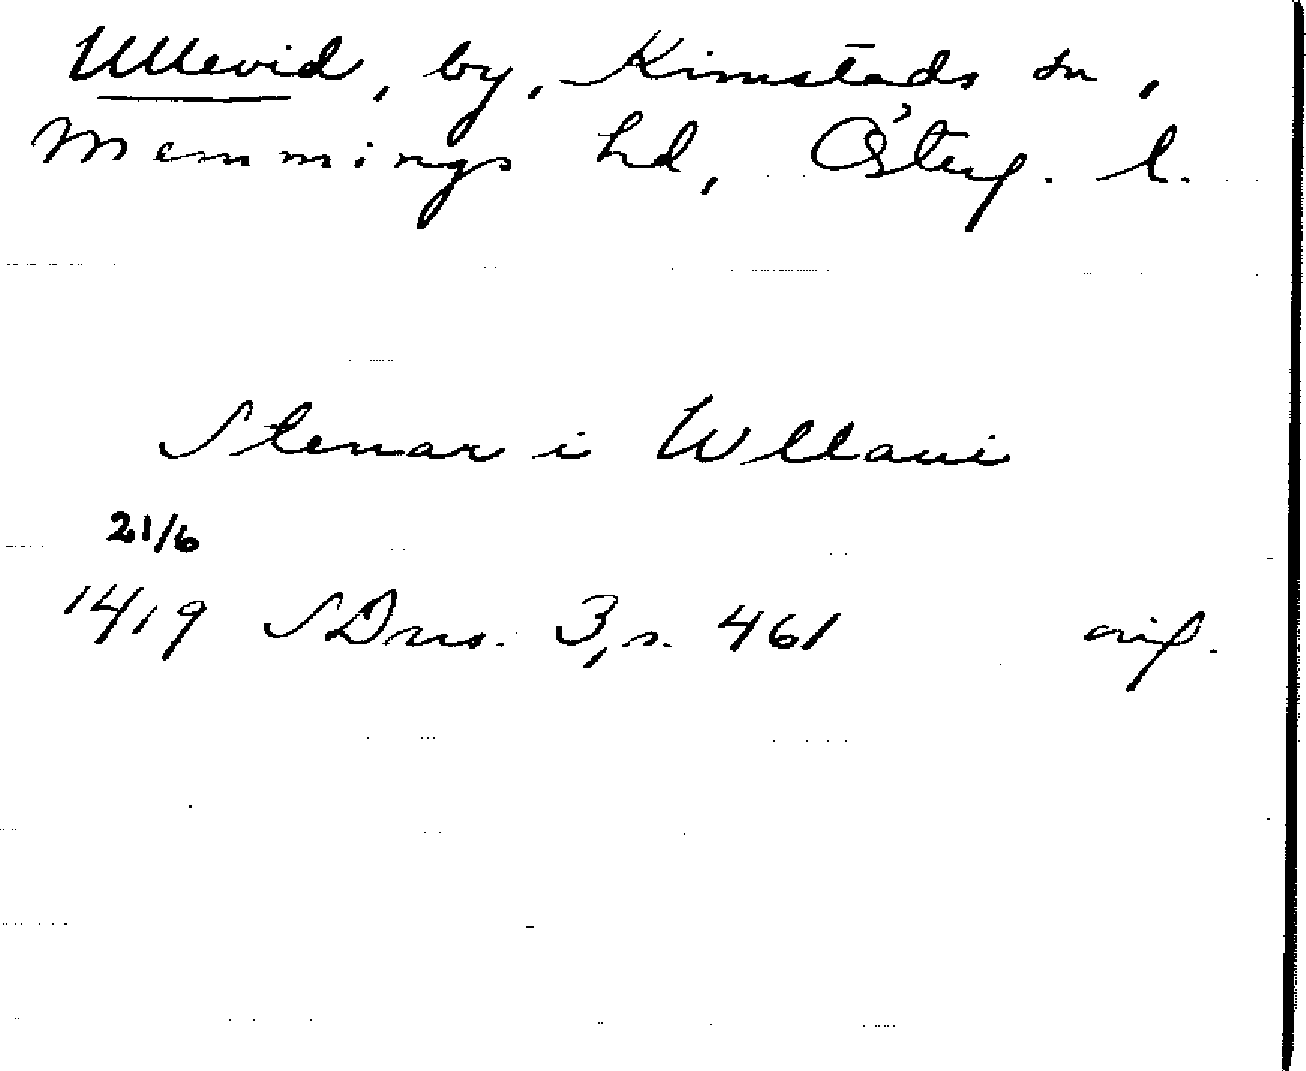 Ullevid, by, Kimstads sn,
Memmings hd, Österg. l.
Stenar i Wllaui
21/6
1419 SDns. 3, s. 461 orig.